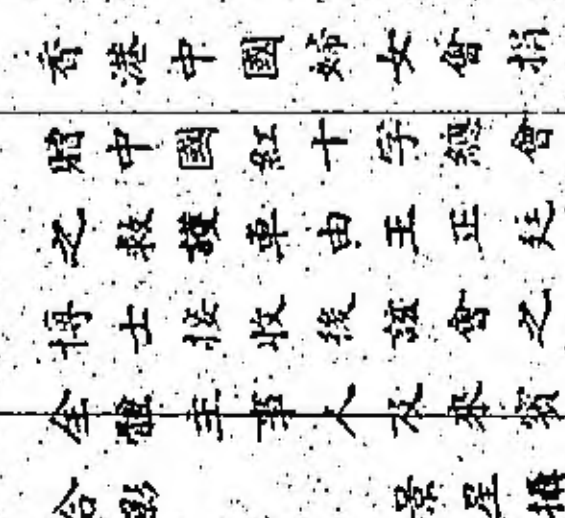 香港中國婦女會捐
贈中國紅十字總會
之救護車由王正廷
博士接收後該會之
全體主事人及來賓
合影 景星攝